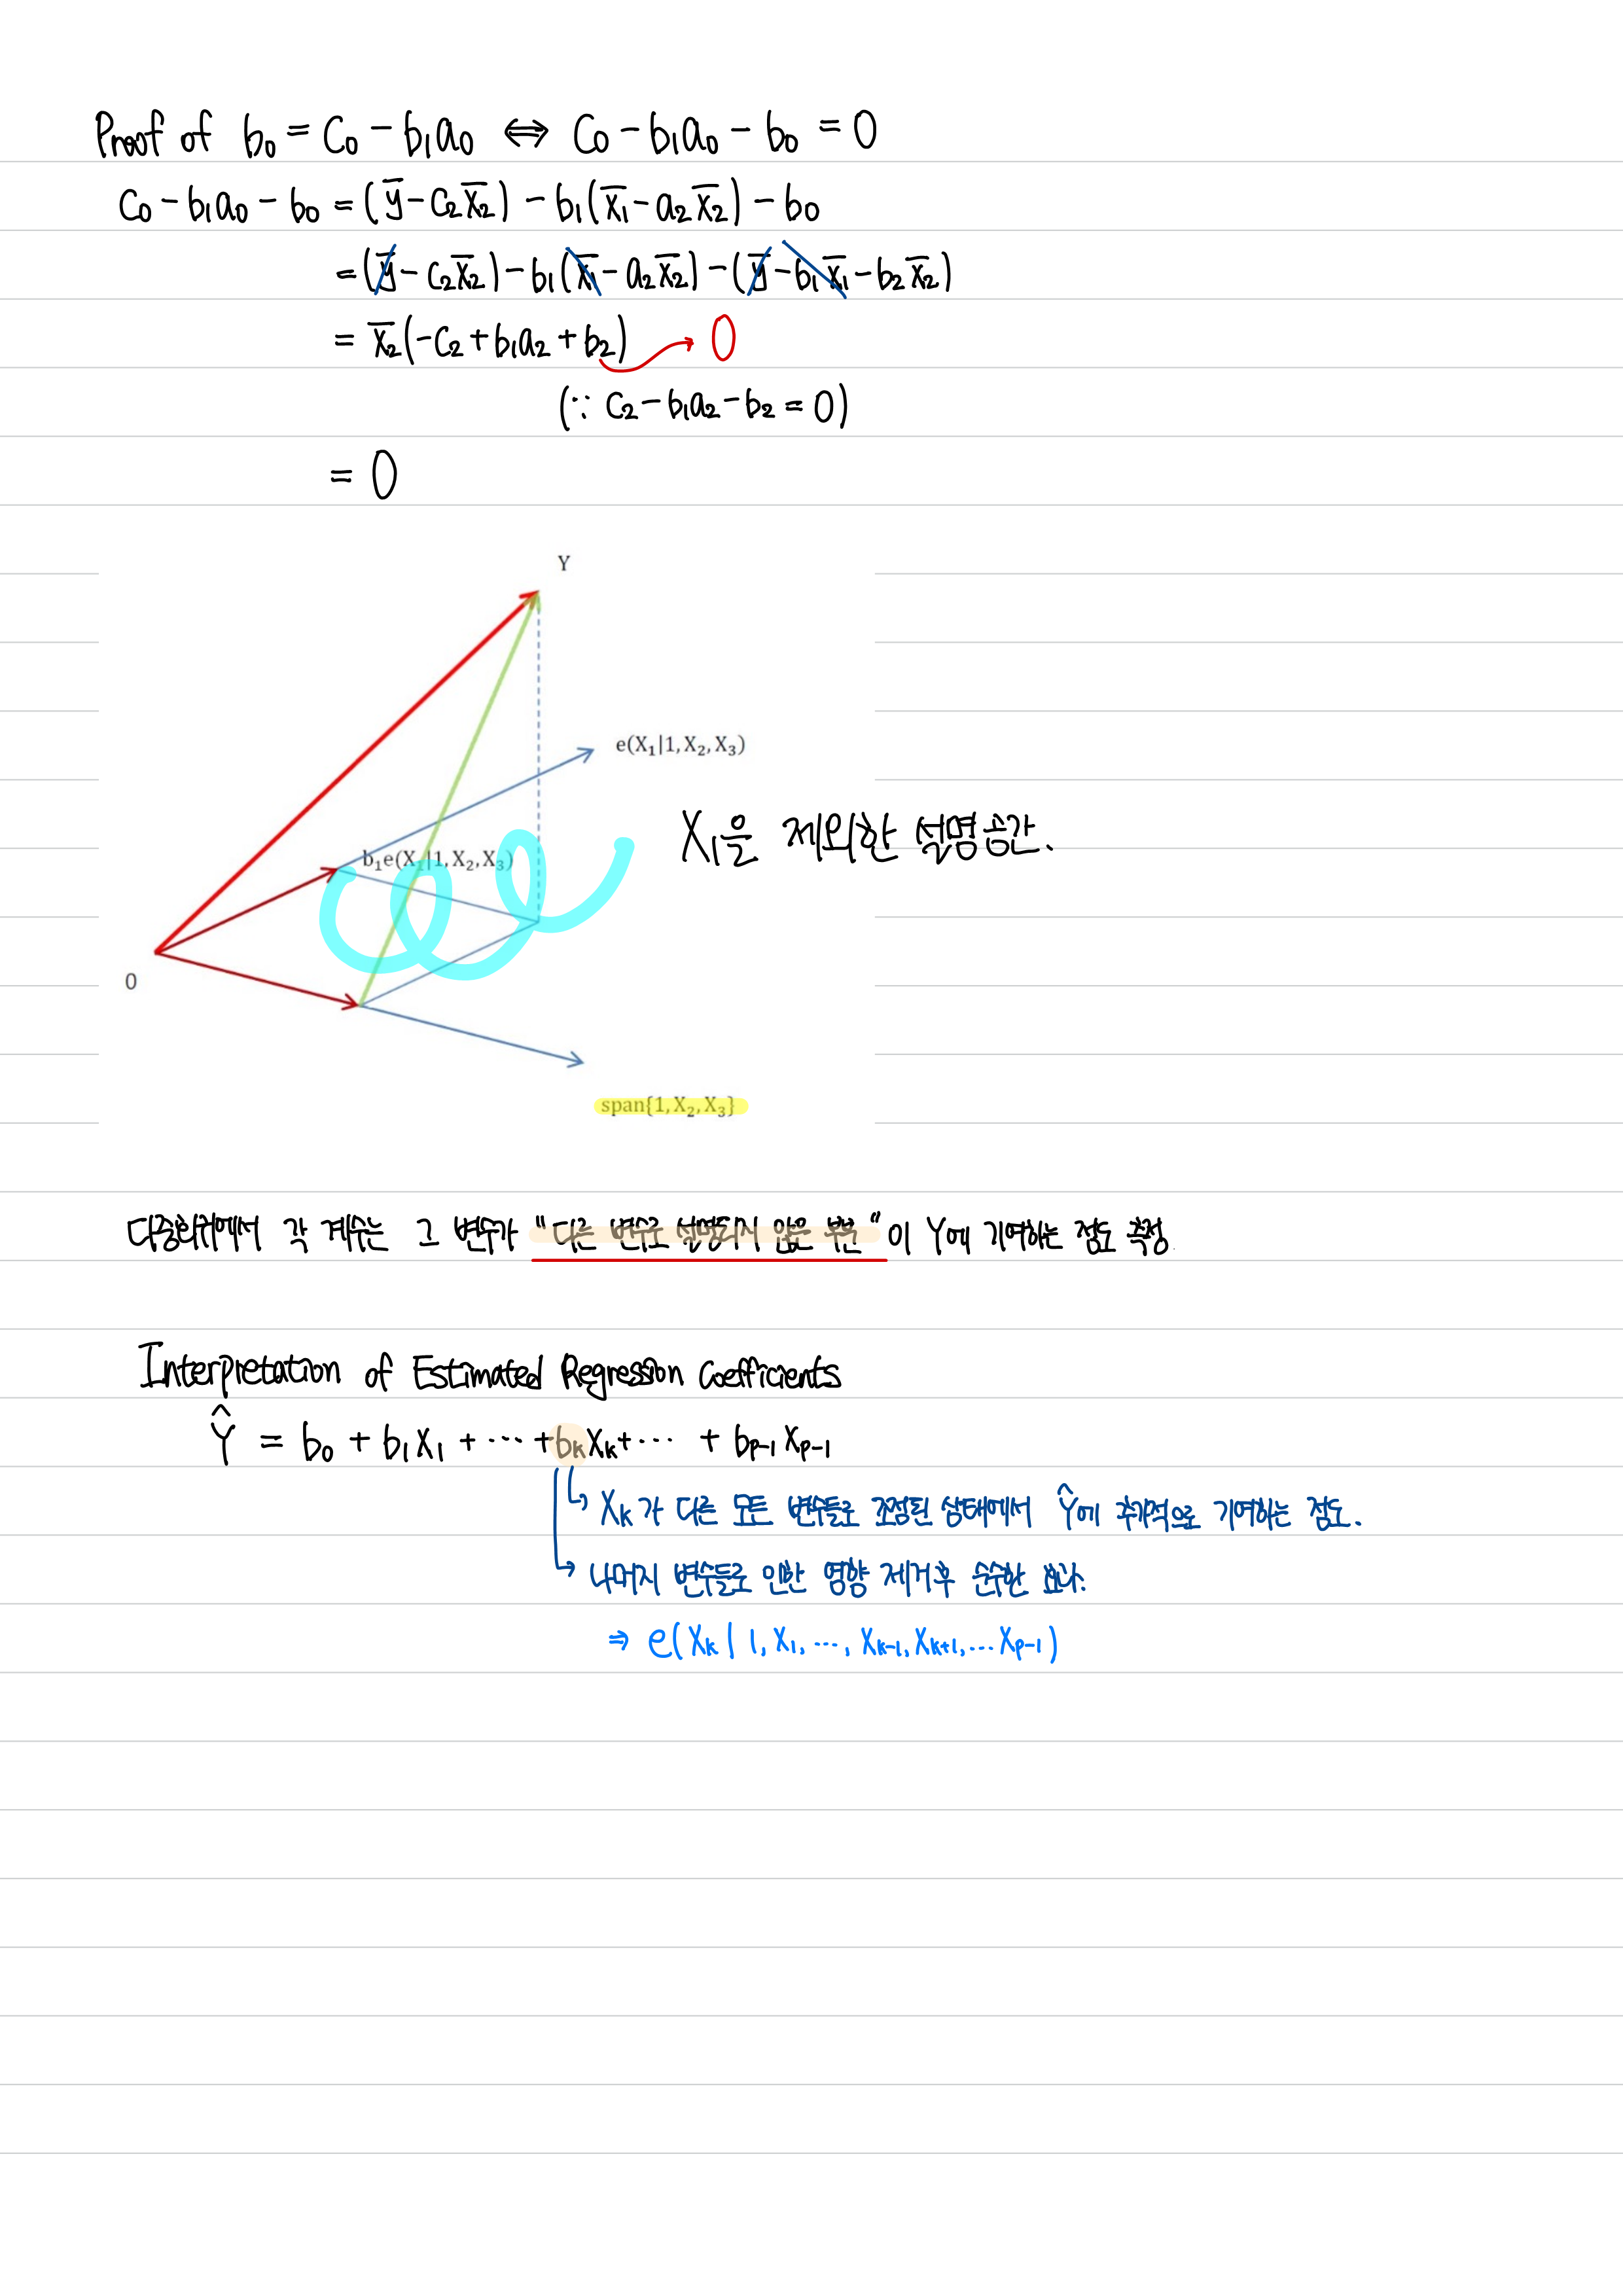 Proof of b₀ = C₀ - b₁a₀ ⇔ C₀ - b₁a₀ - b₀ = 0
C₀ - b₁a₀ - b₀ = (y̅ - C₂x̅₂) - b₁(x̅₁ - a₂x̅₂) - b₀
= (y̅ - C₂x̅₂) - b₁(x̅₁ - a₂x̅₂) - (y̅ - b₁x̅₁ - b₂x̅₂)
= x̅₂(-C₂ + b₁a₂ + b₂) → 0
(∵ C₂ - b₁a₂ - b₂ = 0)
= 0
Y
e(X₁|1,X₂,X₃)
X₁을 제외한 설명공간.
b₁e(X₁|1,X₂,X₃)
0
span{1,X₂,X₃}
다중회귀에서 각 계수는 그 변수가 "다른 변수로 설명되지 않은 부분"이 Y에 기여하는 정도 측정
Interpretation of Estimated Regression Coefficients
Ŷ = b₀ + b₁X₁ + ⋯ + bₖXₖ + ⋯ + bₚ₋₁Xₚ₋₁
↳ Xₖ가 다른 모든 변수들로 조정된 상태에서 Ŷ에 추가적으로 기여하는 정도.
↳ 나머지 변수들로 인한 영향 제거후 순수한 효과.
⇒ e(Xₖ | 1, X₁, ⋯, Xₖ₋₁, Xₖ₊₁, ⋯ Xₚ₋₁)